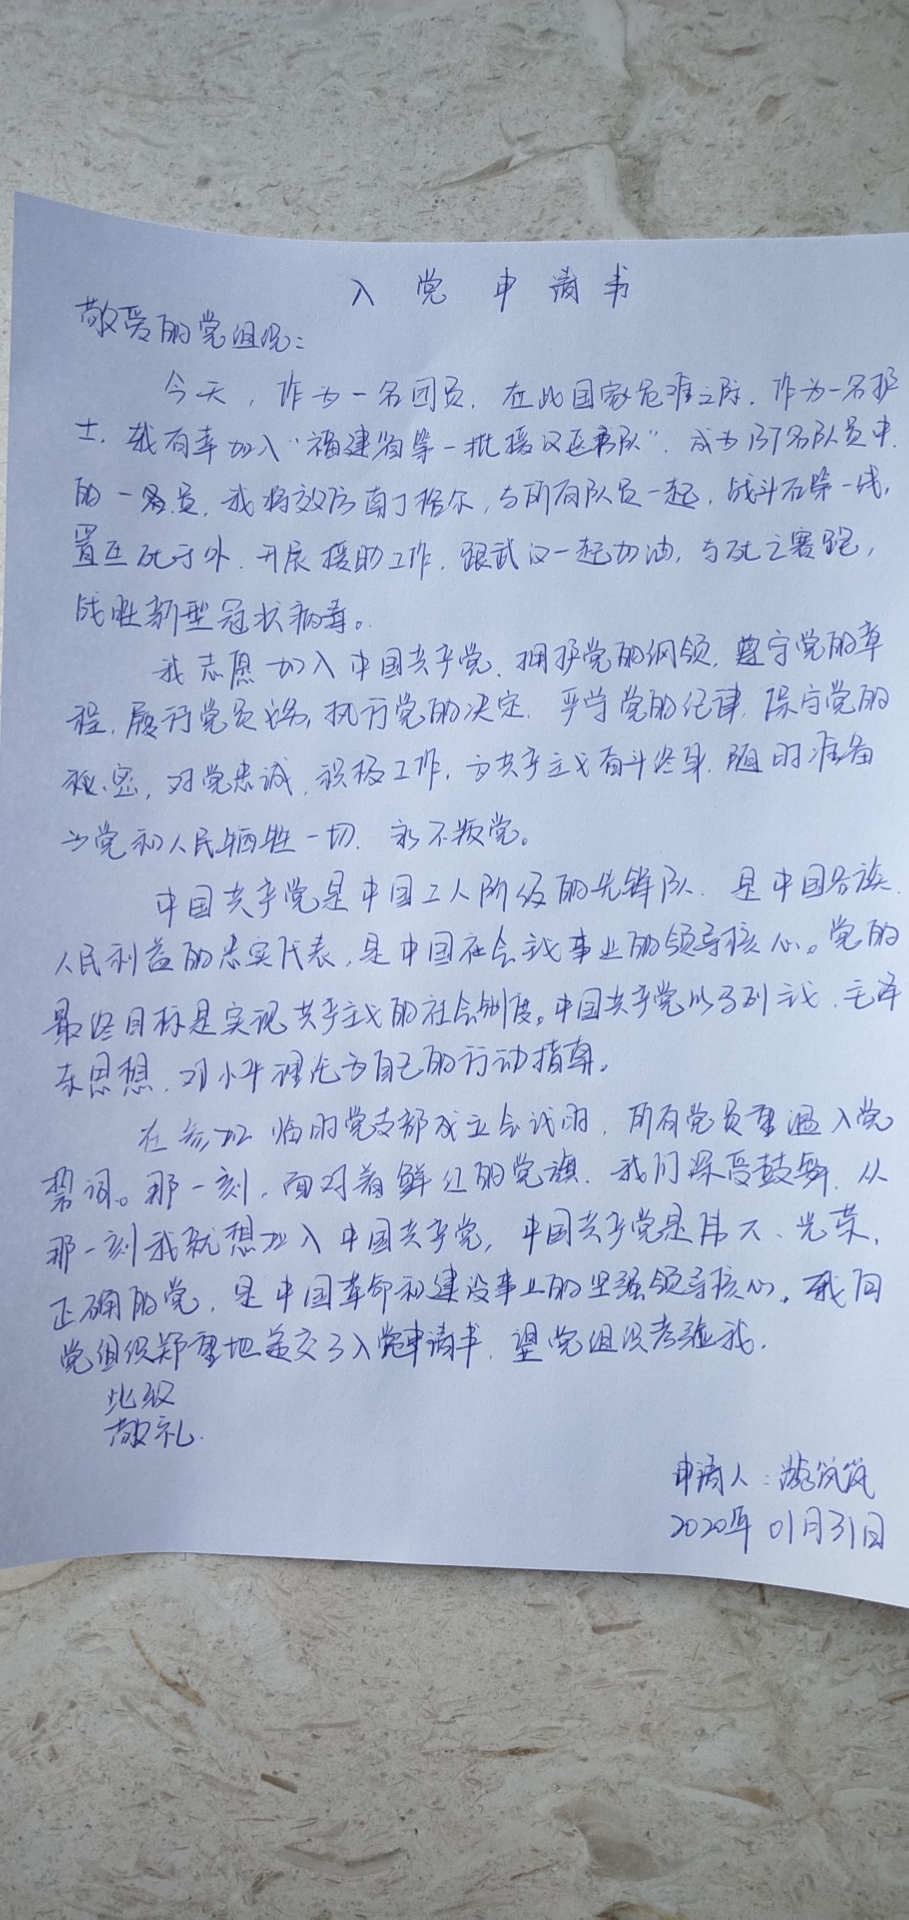 入党申请书
敬爱的党组织：
今天，作为一名团员，在此国家危难之际，作为一名护
士，我有幸加入“福建省第一批援汉医疗队”，成为137名队员中
的一员，我将效仿南丁格尔，与所有队员一起，战斗在第一线，
置生死于外，开展援助工作，跟武汉一起加油，与死亡赛跑，
战胜新型冠状病毒。
我志愿加入中国共产党，拥护党的纲领，遵守党的章
程，履行党员义务，执行党的决定，严守党的纪律，保守党的
秘密，对党忠诚，积极工作，为共产主义奋斗终身，随时准备
为党和人民牺牲一切，永不叛党。
中国共产党是中国工人阶级的先锋队，是中国各族
人民利益的忠实代表，是中国社会主义事业的领导核心。党的
最终目标是实现共产主义的社会制度。中国共产党以马列主义、毛泽
东思想、邓小平理论为自己的行动指南。
在参加临时党支部成立会议时，所有党员重温入党
誓词。那一刻，面对着鲜红的党旗，我们深受鼓舞，从
那一刻我就想加入中国共产党，中国共产党是伟大、光荣、
正确的党，是中国革命和建设事业的坚强领导核心。我向
党组织郑重地递交了入党申请书，望党组织考验我。
此致
敬礼.
申请人：筑筑
2020年01月31日